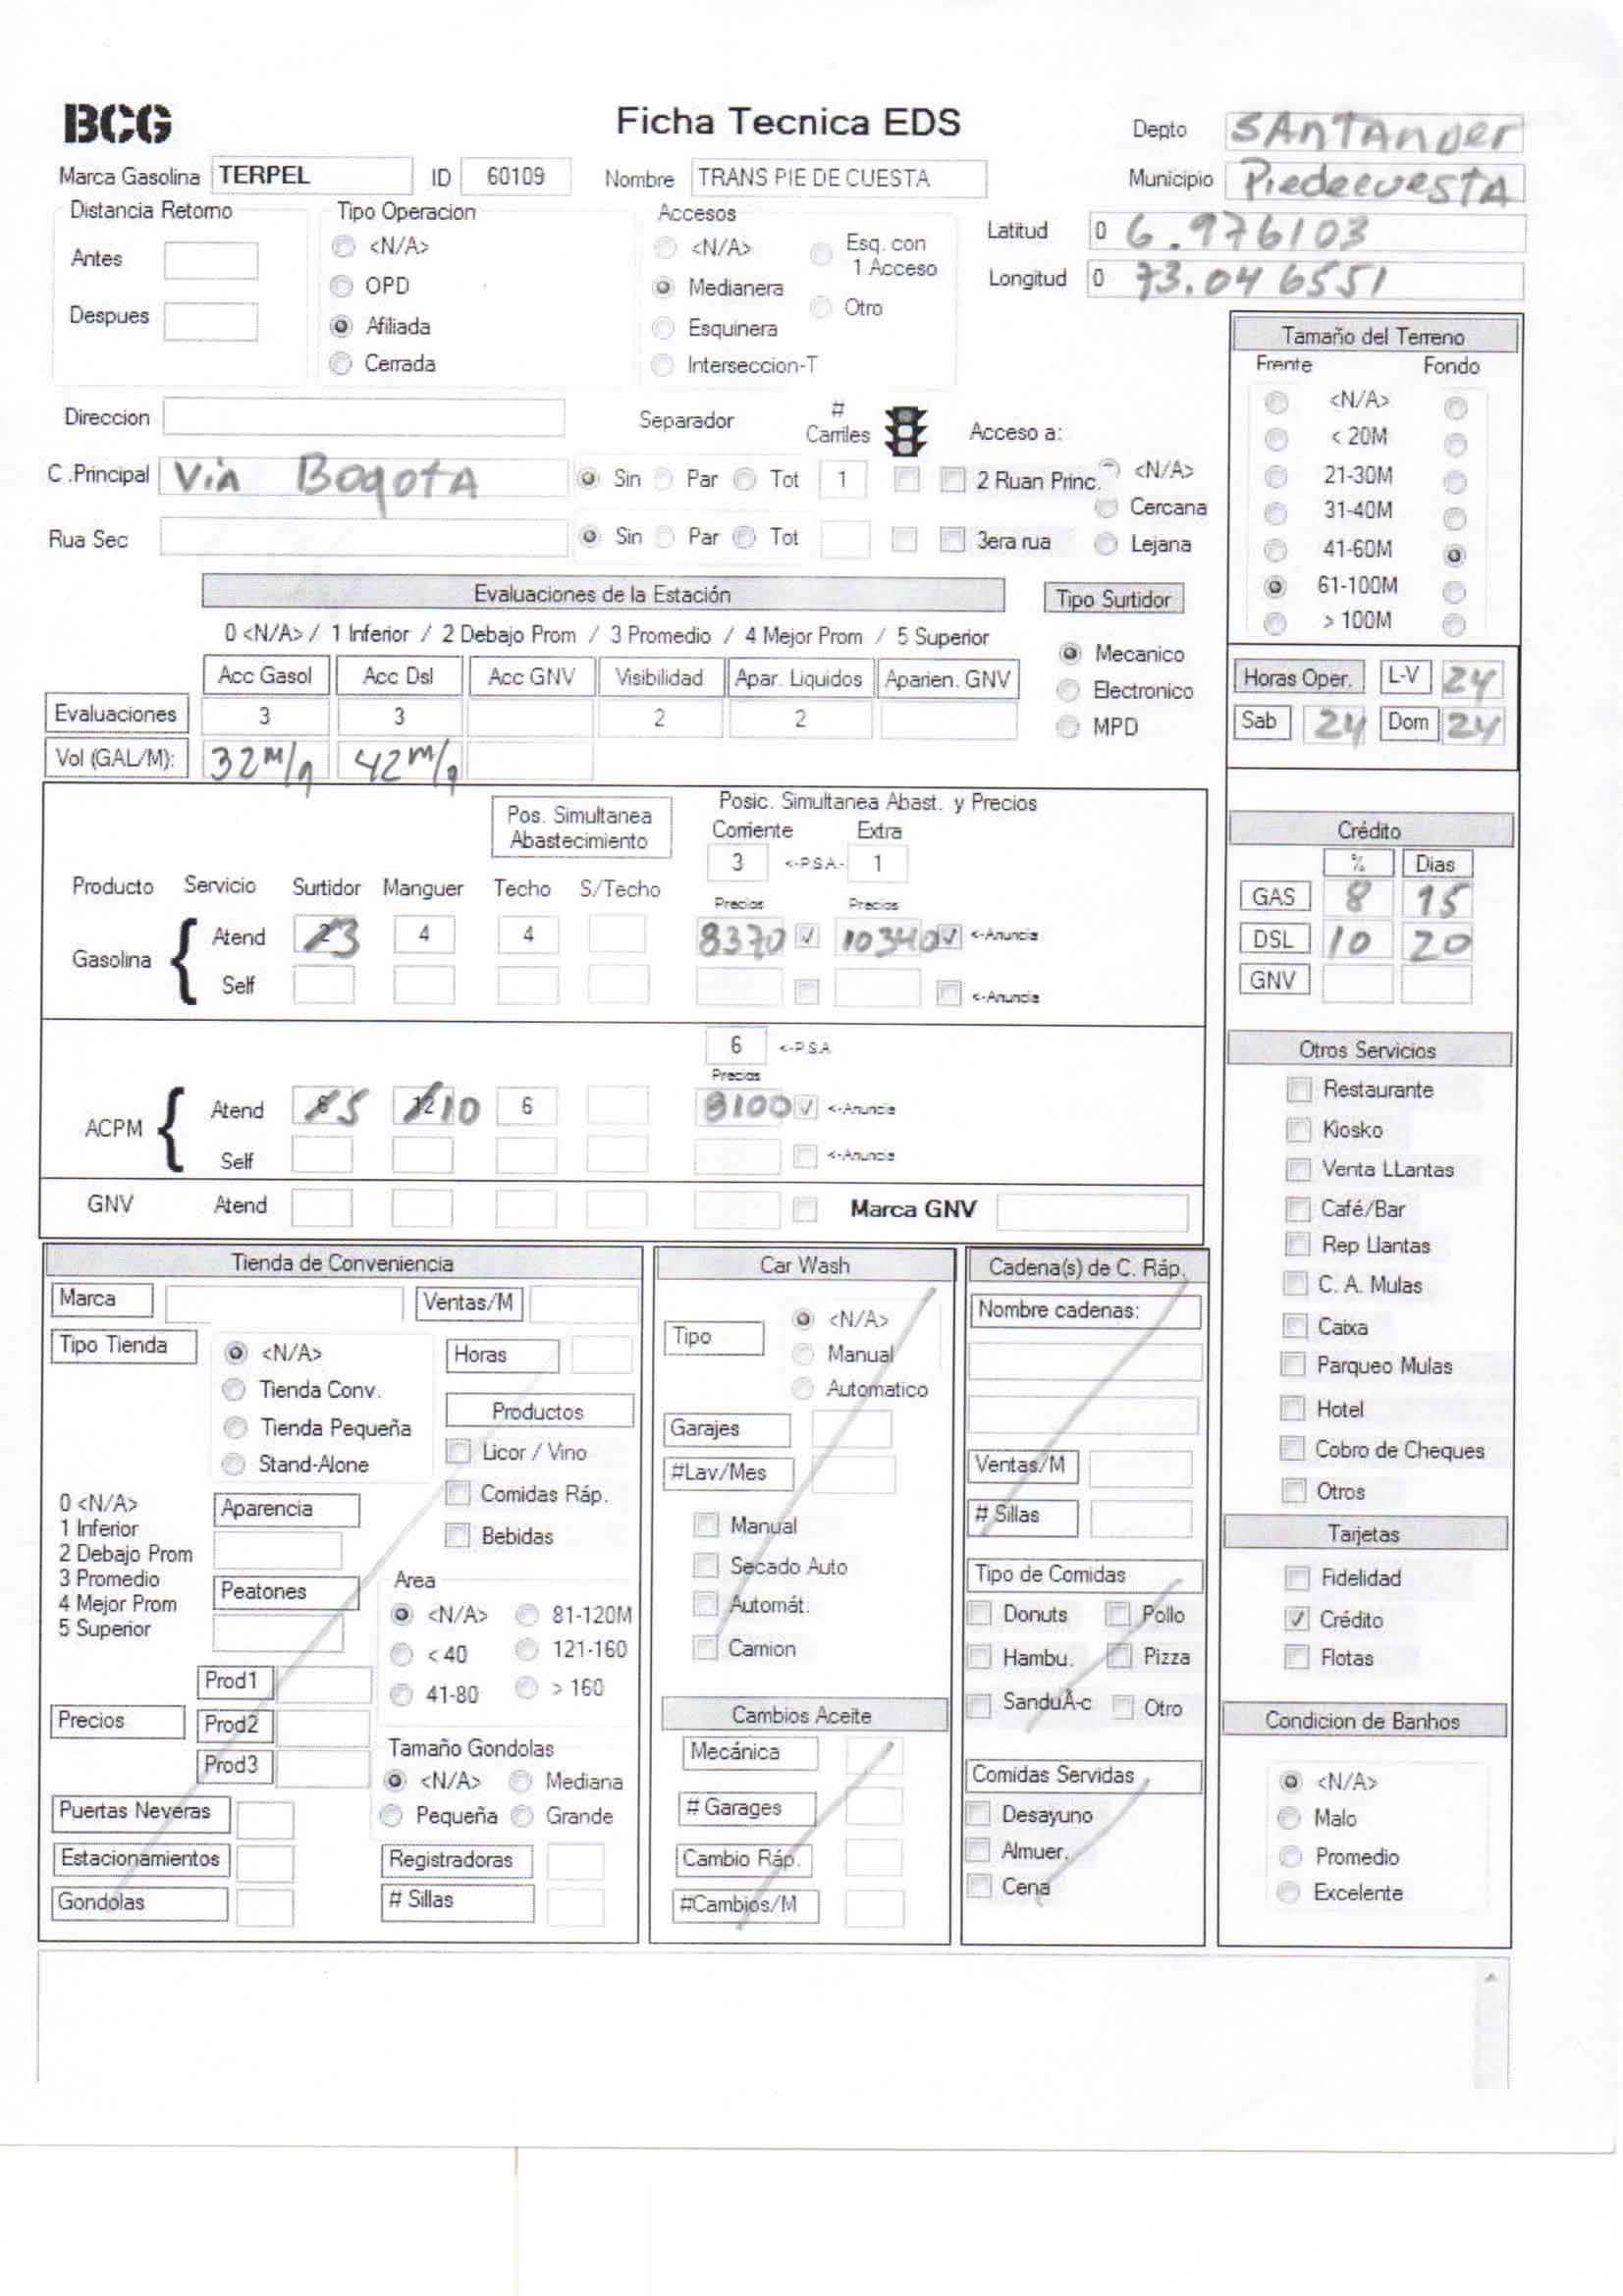 BCG
Ficha Tecnica EDS
Depto SAnTAnder
Marca Gasolina TERPEL ID 60109 Nombre TRANS PIE DE CUESTA Municipio PiedecuestA
Distancia Retorno Tipo Operacion Accesos
Latitud 0 6.976103
Longitud 0 73.046551
Antes
Despues
<N/A>
OPD
Afiliada
Cerrada
<N/A> Esq. con 1 Acceso
Medianera Otro
Esquinera
Interseccion-T
Tamaño del Terreno
Frente Fondo
<N/A>
< 20M
21-30M
31-40M
41-60M
61-100M
> 100M
Direccion Separador # Carriles Acceso a:
C .Principal Via BogotA Sin Par Tot 1 2 Ruan Princ. <N/A>
Cercana
Rua Sec Sin Par Tot 3era rua Lejana
Evaluaciones de la Estación Tipo Surtidor
0 <N/A> / 1 Inferior / 2 Debajo Prom / 3 Promedio / 4 Mejor Prom / 5 Superior
Mecanico
Electronico
MPD
Acc Gasol Acc Dsl Acc GNV Visibilidad Apar. Liquidos Aparien. GNV
Evaluaciones 3 3 2 2
Vol (GAL/M): 32 M/g 42 M/g
Horas Oper. L-V 24
Sab 24 Dom 24
Pos. Simultanea Abastecimiento
Posic. Simultanea Abast. y Precios
Corriente Extra
3 <-P.S.A- 1
Producto Servicio Surtidor Manguer Techo S/Techo Precios Precios
Gasolina Atend 3 4 4 8370 10340 <-Anuncia
Self <-Anuncia
6 <-P.S.A
Precios
ACPM Atend 5 12 10 6 8100 <-Anuncia
Self <-Anuncia
GNV Atend Marca GNV
Crédito
% Dias
GAS 8 15
DSL 10 20
GNV
Otros Servicios
Restaurante
Kiosko
Venta LLantas
Café/Bar
Rep Llantas
C. A. Mulas
Caixa
Parqueo Mulas
Hotel
Cobro de Cheques
Otros
Tarjetas
Fidelidad
Crédito
Flotas
Condicion de Banhos
<N/A>
Malo
Promedio
Excelente
Tienda de Conveniencia
Marca Ventas/M
Tipo Tienda
<N/A>
Tienda Conv.
Tienda Pequeña
Stand-Alone
Horas
Productos
Licor / Vino
Comidas Ráp.
Bebidas
0 <N/A>
1 Inferior
2 Debajo Prom
3 Promedio
4 Mejor Prom
5 Superior
Aparencia
Peatones
Area
<N/A> 81-120M
< 40 121-160
41-80 > 160
Precios
Prod1
Prod2
Prod3
Tamaño Gondolas
<N/A> Mediana
Pequeña Grande
Puertas Neveras
Estacionamientos
Gondolas
Registradoras
# Sillas
Car Wash
Tipo
<N/A>
Manual
Automatico
Garajes
#Lav/Mes
Manual
Secado Auto
Automát.
Camion
Cambios Aceite
Mecánica
# Garages
Cambio Ráp.
#Cambios/M
Cadena(s) de C. Ráp.
Nombre cadenas:
Ventas/M
# Sillas
Tipo de Comidas
Donuts Pollo
Hambu. Pizza
SanduÃ-c Otro
Comidas Servidas
Desayuno
Almuer.
Cena